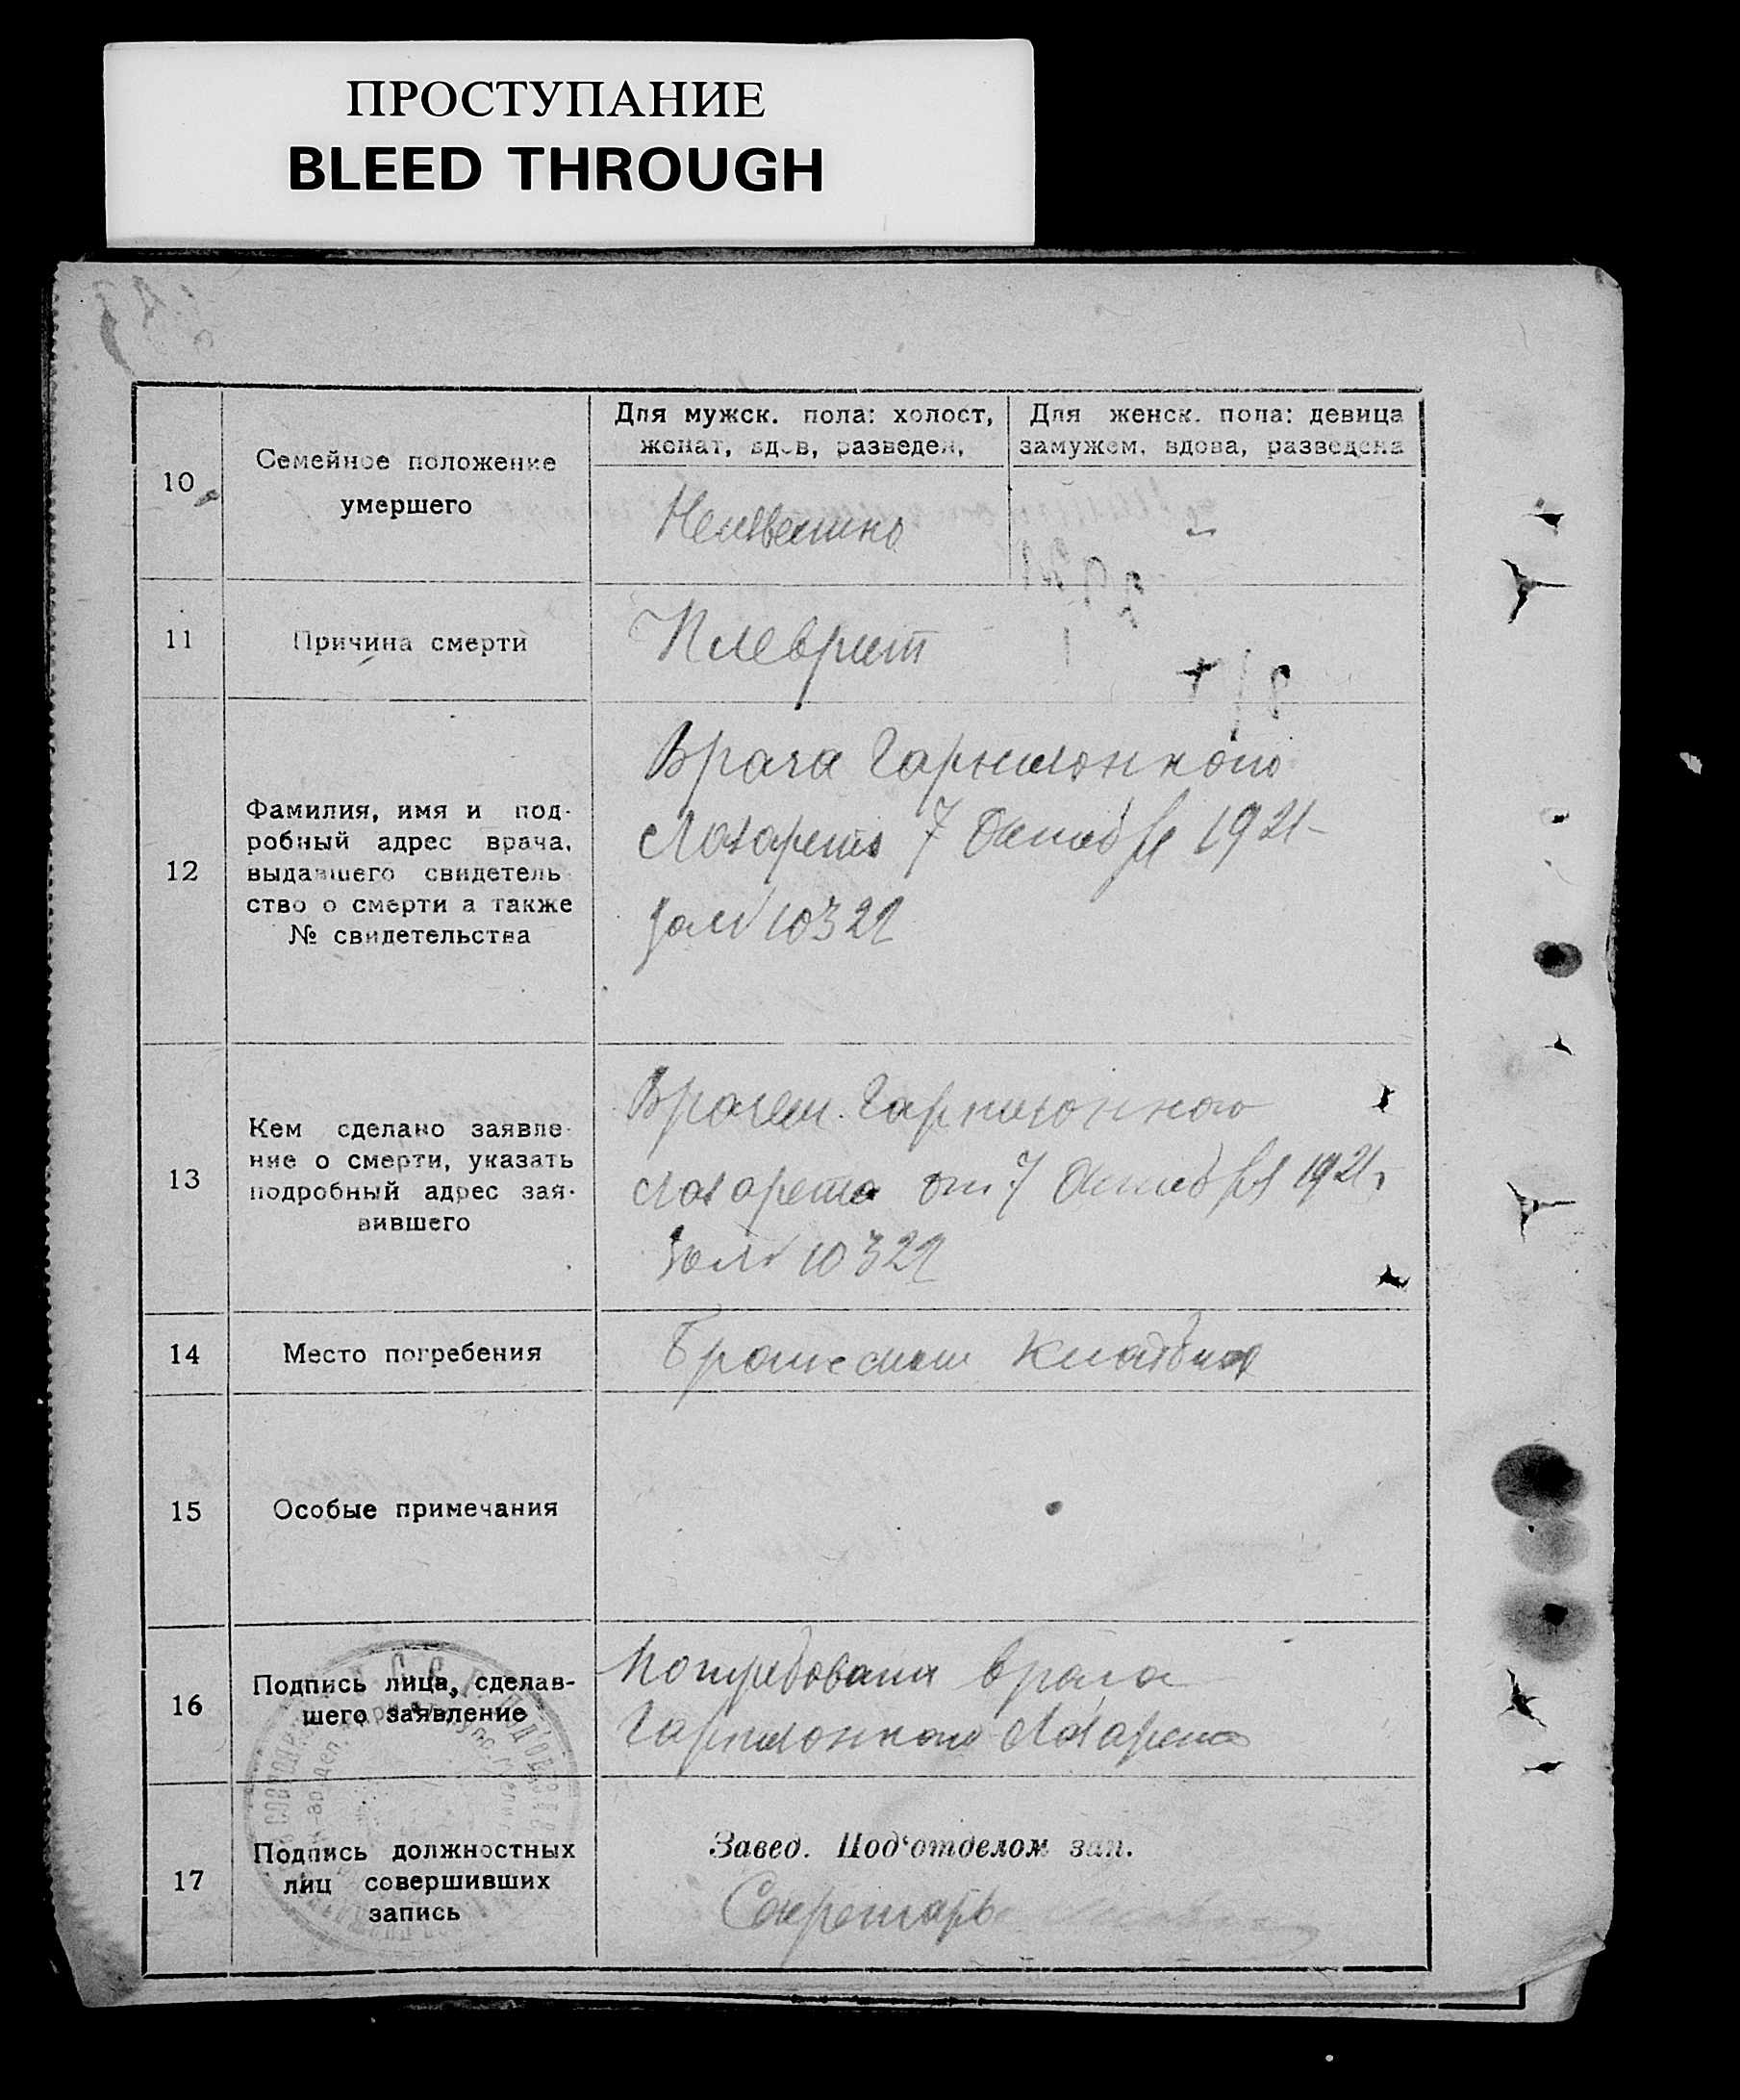 ПРОСТУПАНИЕ
BLEED THROUGH
10
Семейное положение
умершего
Для мужск. пола: холост,
женат, вдов, разведен,
Для женск. пола: девица
замужем, вдова, разведена
Неизвестно
11
Причина смерти
Плеврит
12
Фамилия, имя и под-
робный адрес врача,
выдавшего свидетель
ство о смерти а также
№ свидетельства
Врача Гарнизонного
Лазарета 7 Октября 1921
за № 10322
13
Кем сделано заявле-
ние о смерти, указать
подробный адрес зая-
вившего
Врачем Гарнизонного
Лазарета от 7 Октября 1921г
за № 10322
14
Место погребения
Братское кладбище
15
Особые примечания
16
Подпись лица, сделав-
шего заявление
врача
Гарнизонного Лазарета
17
Подпись должностных
лиц совершивших
запись
Завед. Под‘отделом зап.
Секретарь